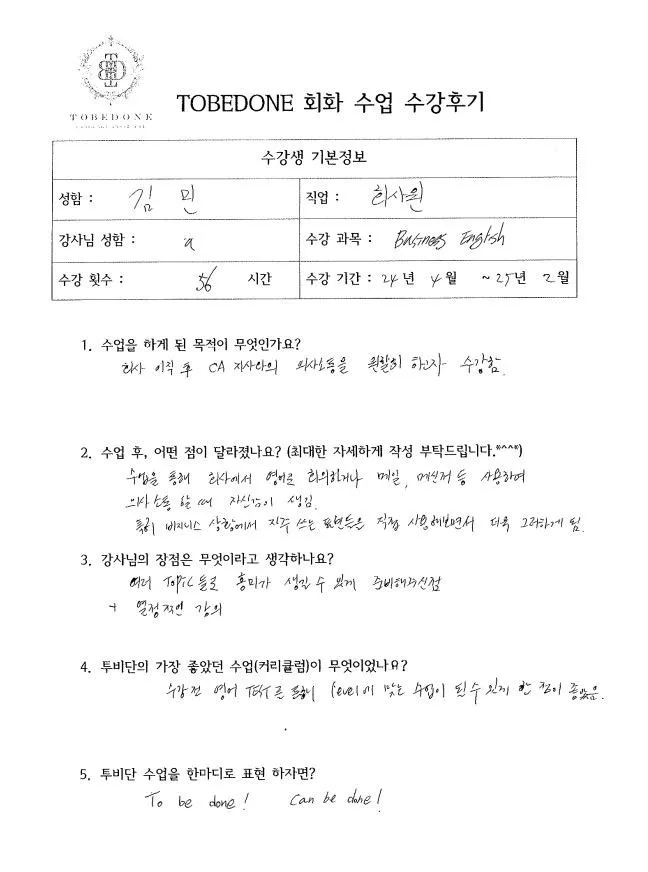 TOBEDONE
TOBEDONE 회화 수업 수강후기
수강생 기본정보
성함 : 김 민
직업 : 회사원
강사님 성함 : a
수강 과목 : Business English
수강 횟수 : 56 시간
수강 기간 : 24년 4월 ~ 25년 2월
1. 수업을 하게 된 목적이 무엇인가요?
회사 이직 후 CA 지사와의 의사소통을 원활히 하고자 수강함.
2. 수업 후, 어떤 점이 달라졌나요? (최대한 자세하게 작성 부탁드립니다.*^^*)
수업을 통해 회사에서 영어로 회의하거나 메일, 메신저 등 사용하여
의사소통 할 때 자신감이 생김.
특히 비지니스 상황에서 자주 쓰는 표현들을 직접 사용해보면서 더욱 그러하게 됨.
3. 강사님의 장점은 무엇이라고 생각하나요?
여러 Topic들로 흥미가 생길 수 있게 준비해주신점
+ 열정적인 강의
4. 투비단의 가장 좋았던 수업(커리큘럼)이 무엇이었나요?
수강 전 영어 TEST를 통해 level에 맞는 수업이 될 수 있게 한 점이 좋았음.
5. 투비단 수업을 한마디로 표현 하자면?
To be done! Can be done!